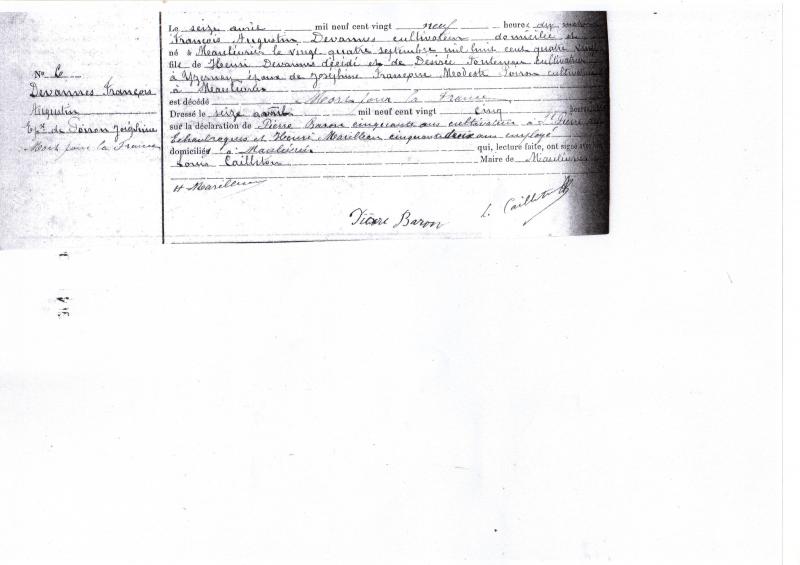 No 6
Devannes François
Augustin
Epx de Poiron Joséphine
Mort pour la France
Le seize avril mil neuf cent vingt neuf heures dix
François Augustin Devannes cultivateur domicilié et
né à Maulévrier le vingt quatre septembre mil huit cent quatre vingt
fils de Henri Devannes décédé et de Désirée cultivatrice
à Yzernay époux de Joséphine Françoise Modeste Poiron cultivatrice
à Maulévrier
est décédé Mort pour la France
Dressé le seize avril mil neuf cent vingt cinq heures
sur la déclaration de Pierre Baron cinquante ans cultivateur à St Pierre des
Echaubrognes et Henri Marilleau cinquante trois ans employé
domiciliés à Maulévrier qui, lecture faite, ont signé avec
Louis Cailleton Maire de Maulévrier
H Marilleau
Pierre Baron
L. Cailleton